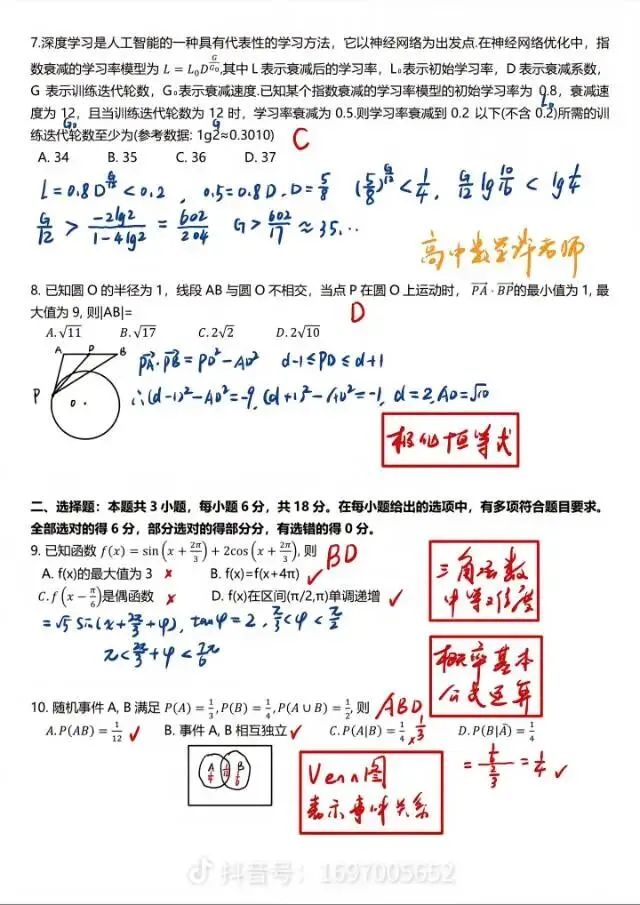 7.深度学习是人工智能的一种具有代表性的学习方法，它以神经网络为出发点.在神经网络优化中，指
数衰减的学习率模型为 L = L₀D^(G/G₀),其中 L 表示衰减后的学习率，L₀表示初始学习率，D 表示衰减系数，
G 表示训练迭代轮数，G₀表示衰减速度.已知某个指数衰减的学习率模型的初始学习率为 0.8，衰减速
L₀
度为 12，且当训练迭代轮数为 12 时，学习率衰减为 0.5.则学习率衰减到 0.2 以下(不含 0.2)所需的训
G₀ G
练迭代轮数至少为(参考数据: 1g2≈0.3010) C
A. 34 B. 35 C. 36 D. 37
L=0.8D^(G/12)<0.2, 0.5=0.8D. D=5/8 (5/8)^(G/12)<1/4, G/12 lg 10/16 < lg 1/4
G/12 > -2lg2/(1-4lg2) = 602/204 G>602/17≈35...
高中数学许老师
8. 已知圆 O 的半径为 1，线段 AB 与圆 O 不相交，当点 P 在圆 O 上运动时， PA·BP的最小值为 1, 最
大值为 9, 则|AB|= D
A.√11 B.√17 C.2√2 D.2√10
A D B
P O
PA·PB=PD²-AD² d-1≤PD≤d+1
∴(d-1)²-AD²=-9, (d+1)²-AD²=-1, d=2, AD=√10
极化恒等式
二、选择题：本题共 3 小题，每小题 6 分，共 18 分。在每小题给出的选项中，有多项符合题目要求。
全部选对的得 6 分，部分选对的得部分分，有选错的得 0 分。
9. 已知函数 f(x) = sin(x + 2π/3) + 2cos(x + 2π/3), 则 BD
A. f(x)的最大值为 3 × B. f(x)=f(x+4π) ✓
C.f(x − π/6)是偶函数 × D. f(x)在区间(π/2,π)单调递增 ✓
=√5 sin(x+2π/3+φ), tanφ=2, π/3<φ<π/2
π<2π/3+φ<7π/6
三角函数
中等难度
概率基本
公式运算
10. 随机事件 A, B 满足 P(A) = 1/3, P(B) = 1/4, P(A ∪ B) = 1/2, 则 ABD
A. P(AB) = 1/12 ✓ B. 事件 A, B 相互独立 ✓ C. P(A|B) = 1/4 × 1/3 D. P(B|Ā) = 1/4
A 1/4 1/12 B 1/6
= (1/6)/(2/3) = 1/4 ✓
Venn图
表示事件关系
抖音号：1697005652